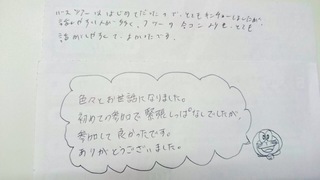 バスツアーははじめてだったので、とてもキンチョーしましたが、
話しやすい人が多くて、ツアーの合コンよりも、とても
話がしやすくて、よかったです。
色々とお世話になりました。
初めての参加で緊張しっぱなしでしたが、
参加して良かったです。
ありがとうございました。